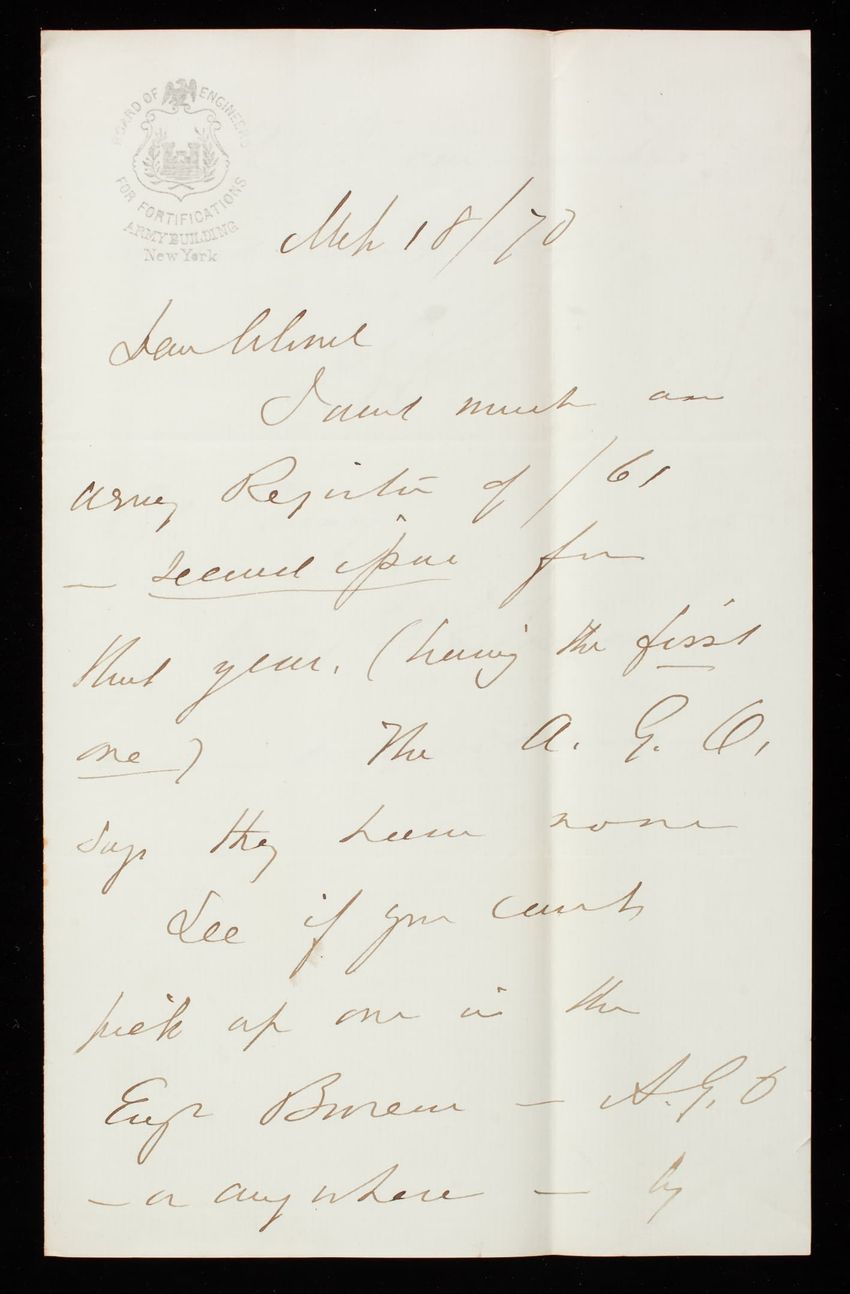 BOARD OF ENGINEERS
FOR FORTIFICATIONS
ARMY BUILDING
New York
Mch 18/70
Dear Colonel
I want much an
Army Register of /61
— second issue for
that year. (having the first
one) The A. G. O.
says they have none
See if you can't
pick up one in the
Engr Bureau — A. G. O
— or anywhere — by